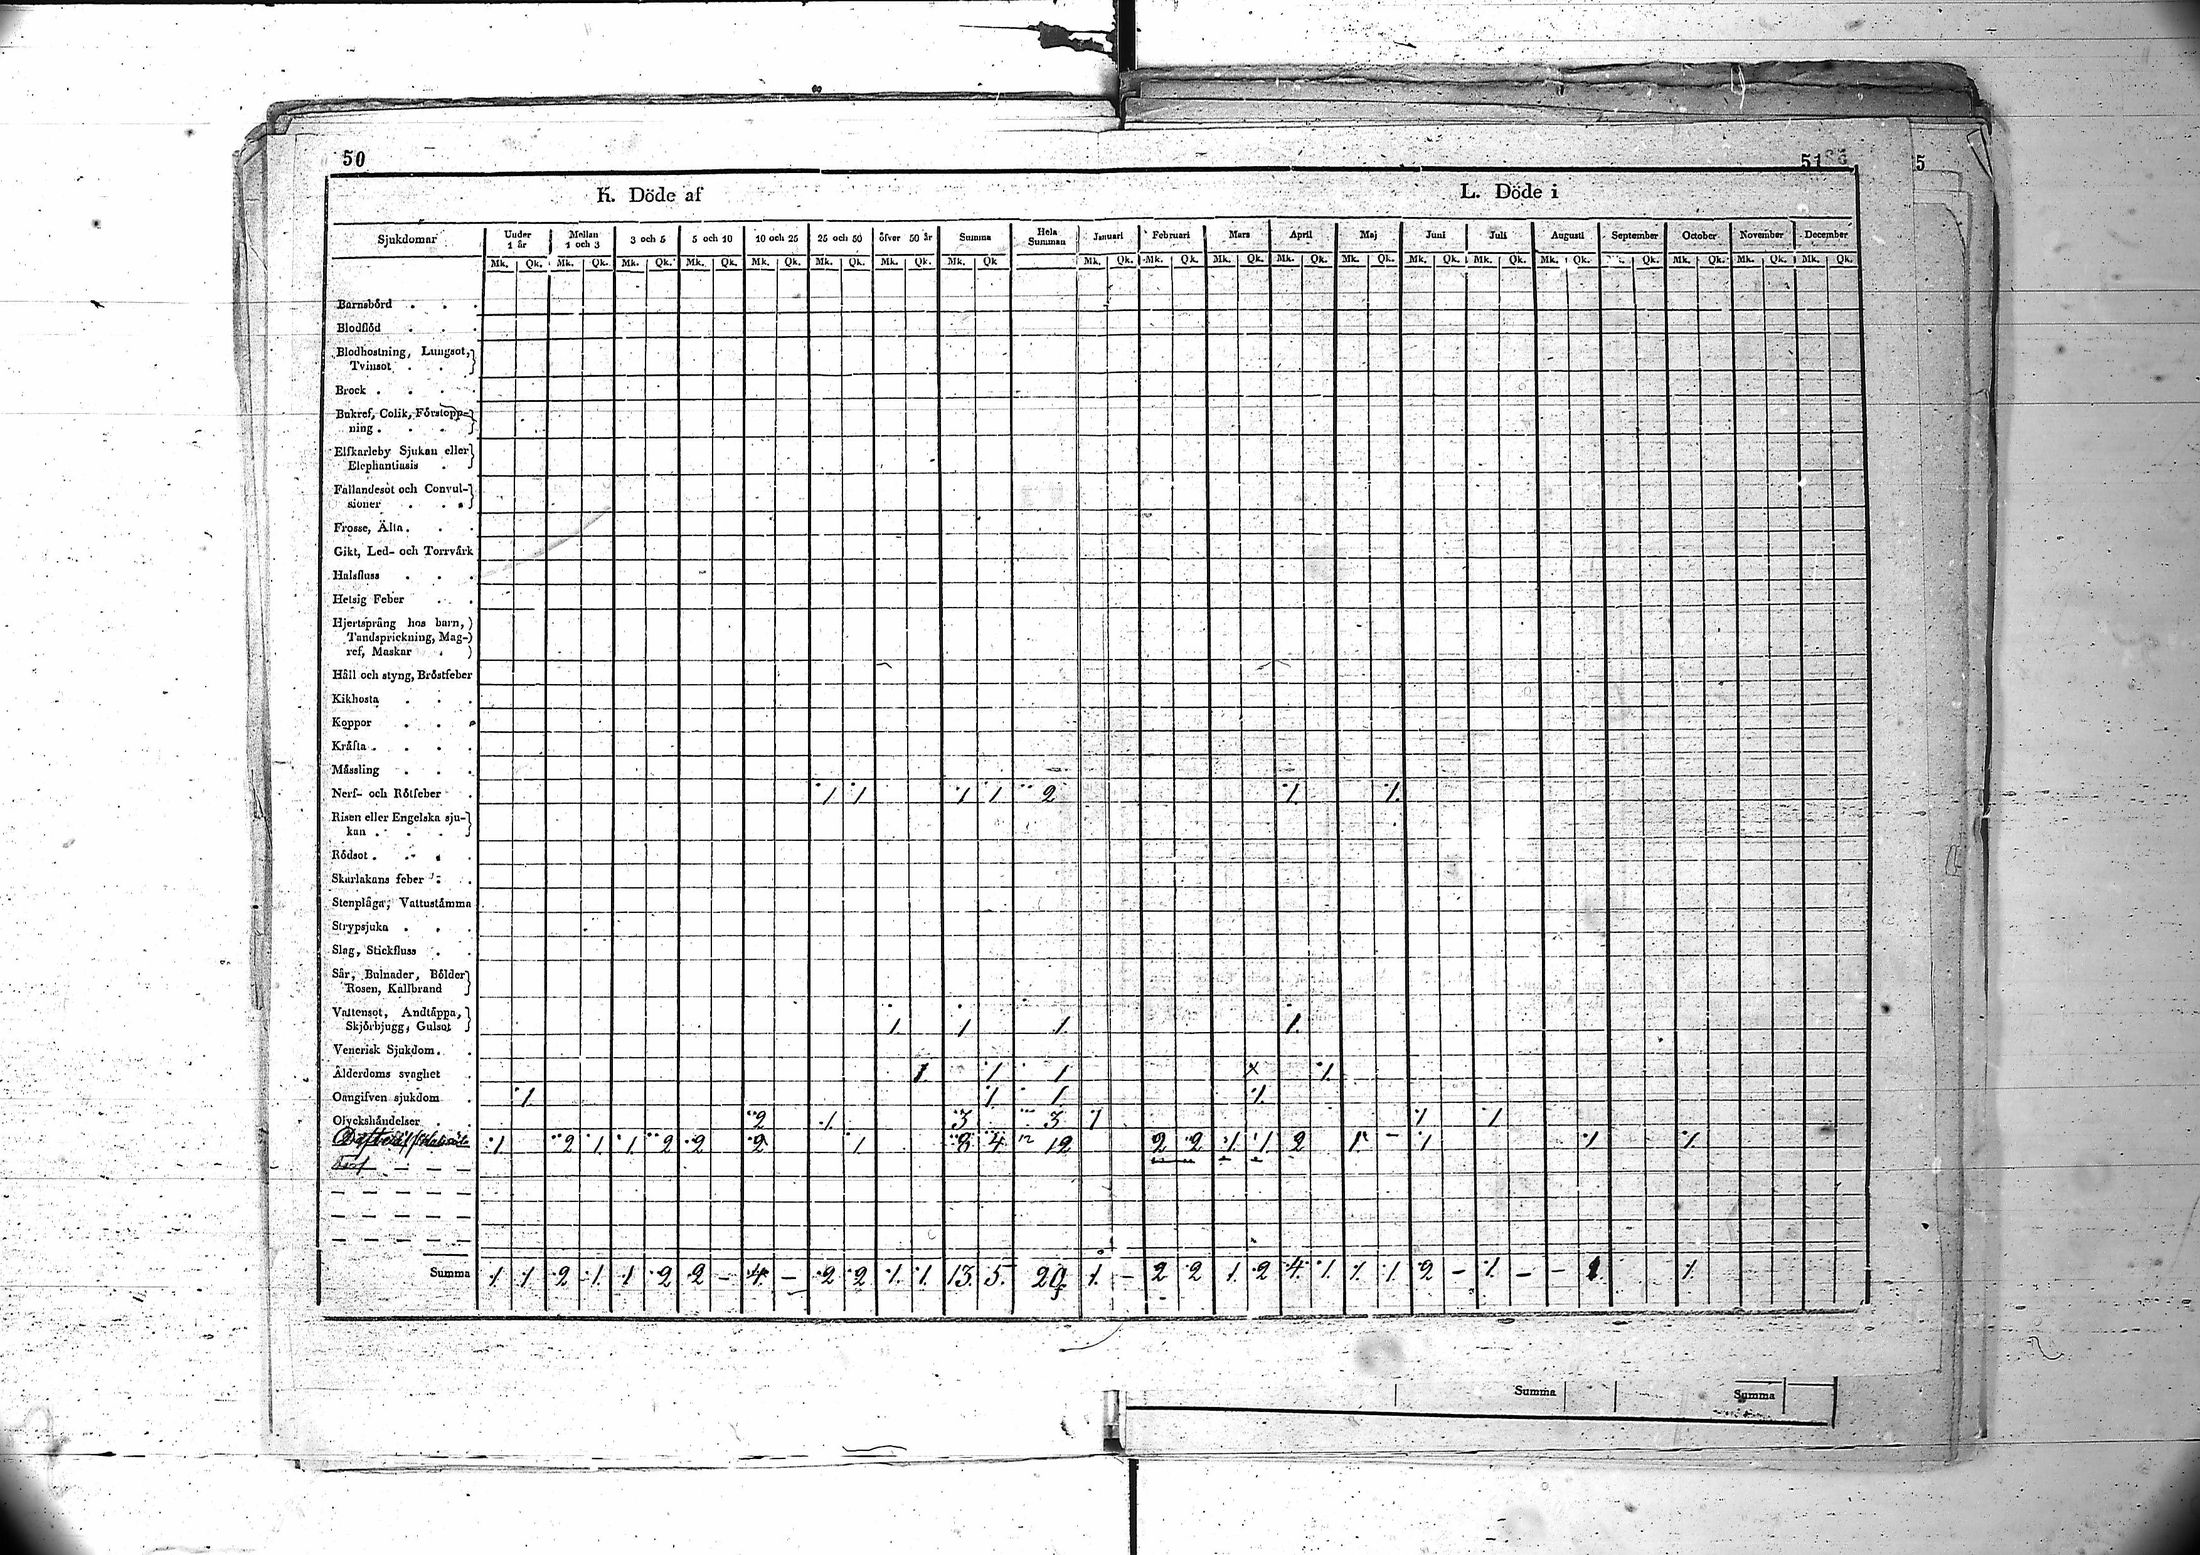 50
51
5
K. Döde af
L. Döde i
Sjukdomar Under 1 år Mellan 1 och 3 3 och 5 5 och 10 10 och 25 25 och 50 öfver 50 år Summa Hela Summan Januari Februari Mars April Maj Juni Juli Augusti September October November December
Mk. Qk. Mk. Qk. Mk. Qk. Mk. Qk. Mk. Qk. Mk. Qk. Mk. Qk. Mk. Qk Mk. Qk. Mk. Qk. Mk. Qk. Mk. Qk. Mk. Qk. Mk. Qk. Mk. Qk. Mk. Qk. Qk. Mk. Qk. Mk. Qk. Mk. Qk.
Barnsbörd . . .
Blodflöd . . .
Blodhostning, Lungsot,
Tvinsot . .
Brock . . . .
Bukref, Colik, Förstopp-
ning . . .
Elfkarleby Sjukan eller
Elephantiasis .
Fallandesot och Convul-
sioner . . .
Frosse, Älta . . .
Gikt, Led- och Torrvärk
Halsfluss . . .
Hetsig Feber . .
Hjertsprång hos barn,
Tandsprickning, Mag-
ref, Maskar .
Håll och styng, Bröstfeber
Kikhosta . . .
Koppor . . .
Kräfta . . . .
Mässling . . .
Nerf- och Rötfeber . 1 1 1 1 2 1 1
Risen eller Engelska sju-
kan . . .
Rödsot . . . .
Skarlakans feber . .
Stenplåga, Vattustämma
Strypsjuka . . .
Slag, Stickfluss . .
Sår, Bulnader, Bölder
Rosen, Kallbrand
Vattensot, Andtäppa,
Skjörbjugg, Gulsot 1 1 1 1
Venerisk Sjukdom . .
Ålderdoms svaghet . 1 1 1 x 1
Oangifven sjukdom . 1 1 1 1
Olyckshändelser . . 2 1 3 3 1 1 1
1 2 1 1 2 2 2 1 8 4 12 2 2 1 1 2 1 - 1 1 1
Summa 1 1 2 1 1 2 2 - 4 - 2 2 1 1 13 5 1 - 2 2 1 2 4 1 1 1 2 - 1 - - 1 1
Summa Summa